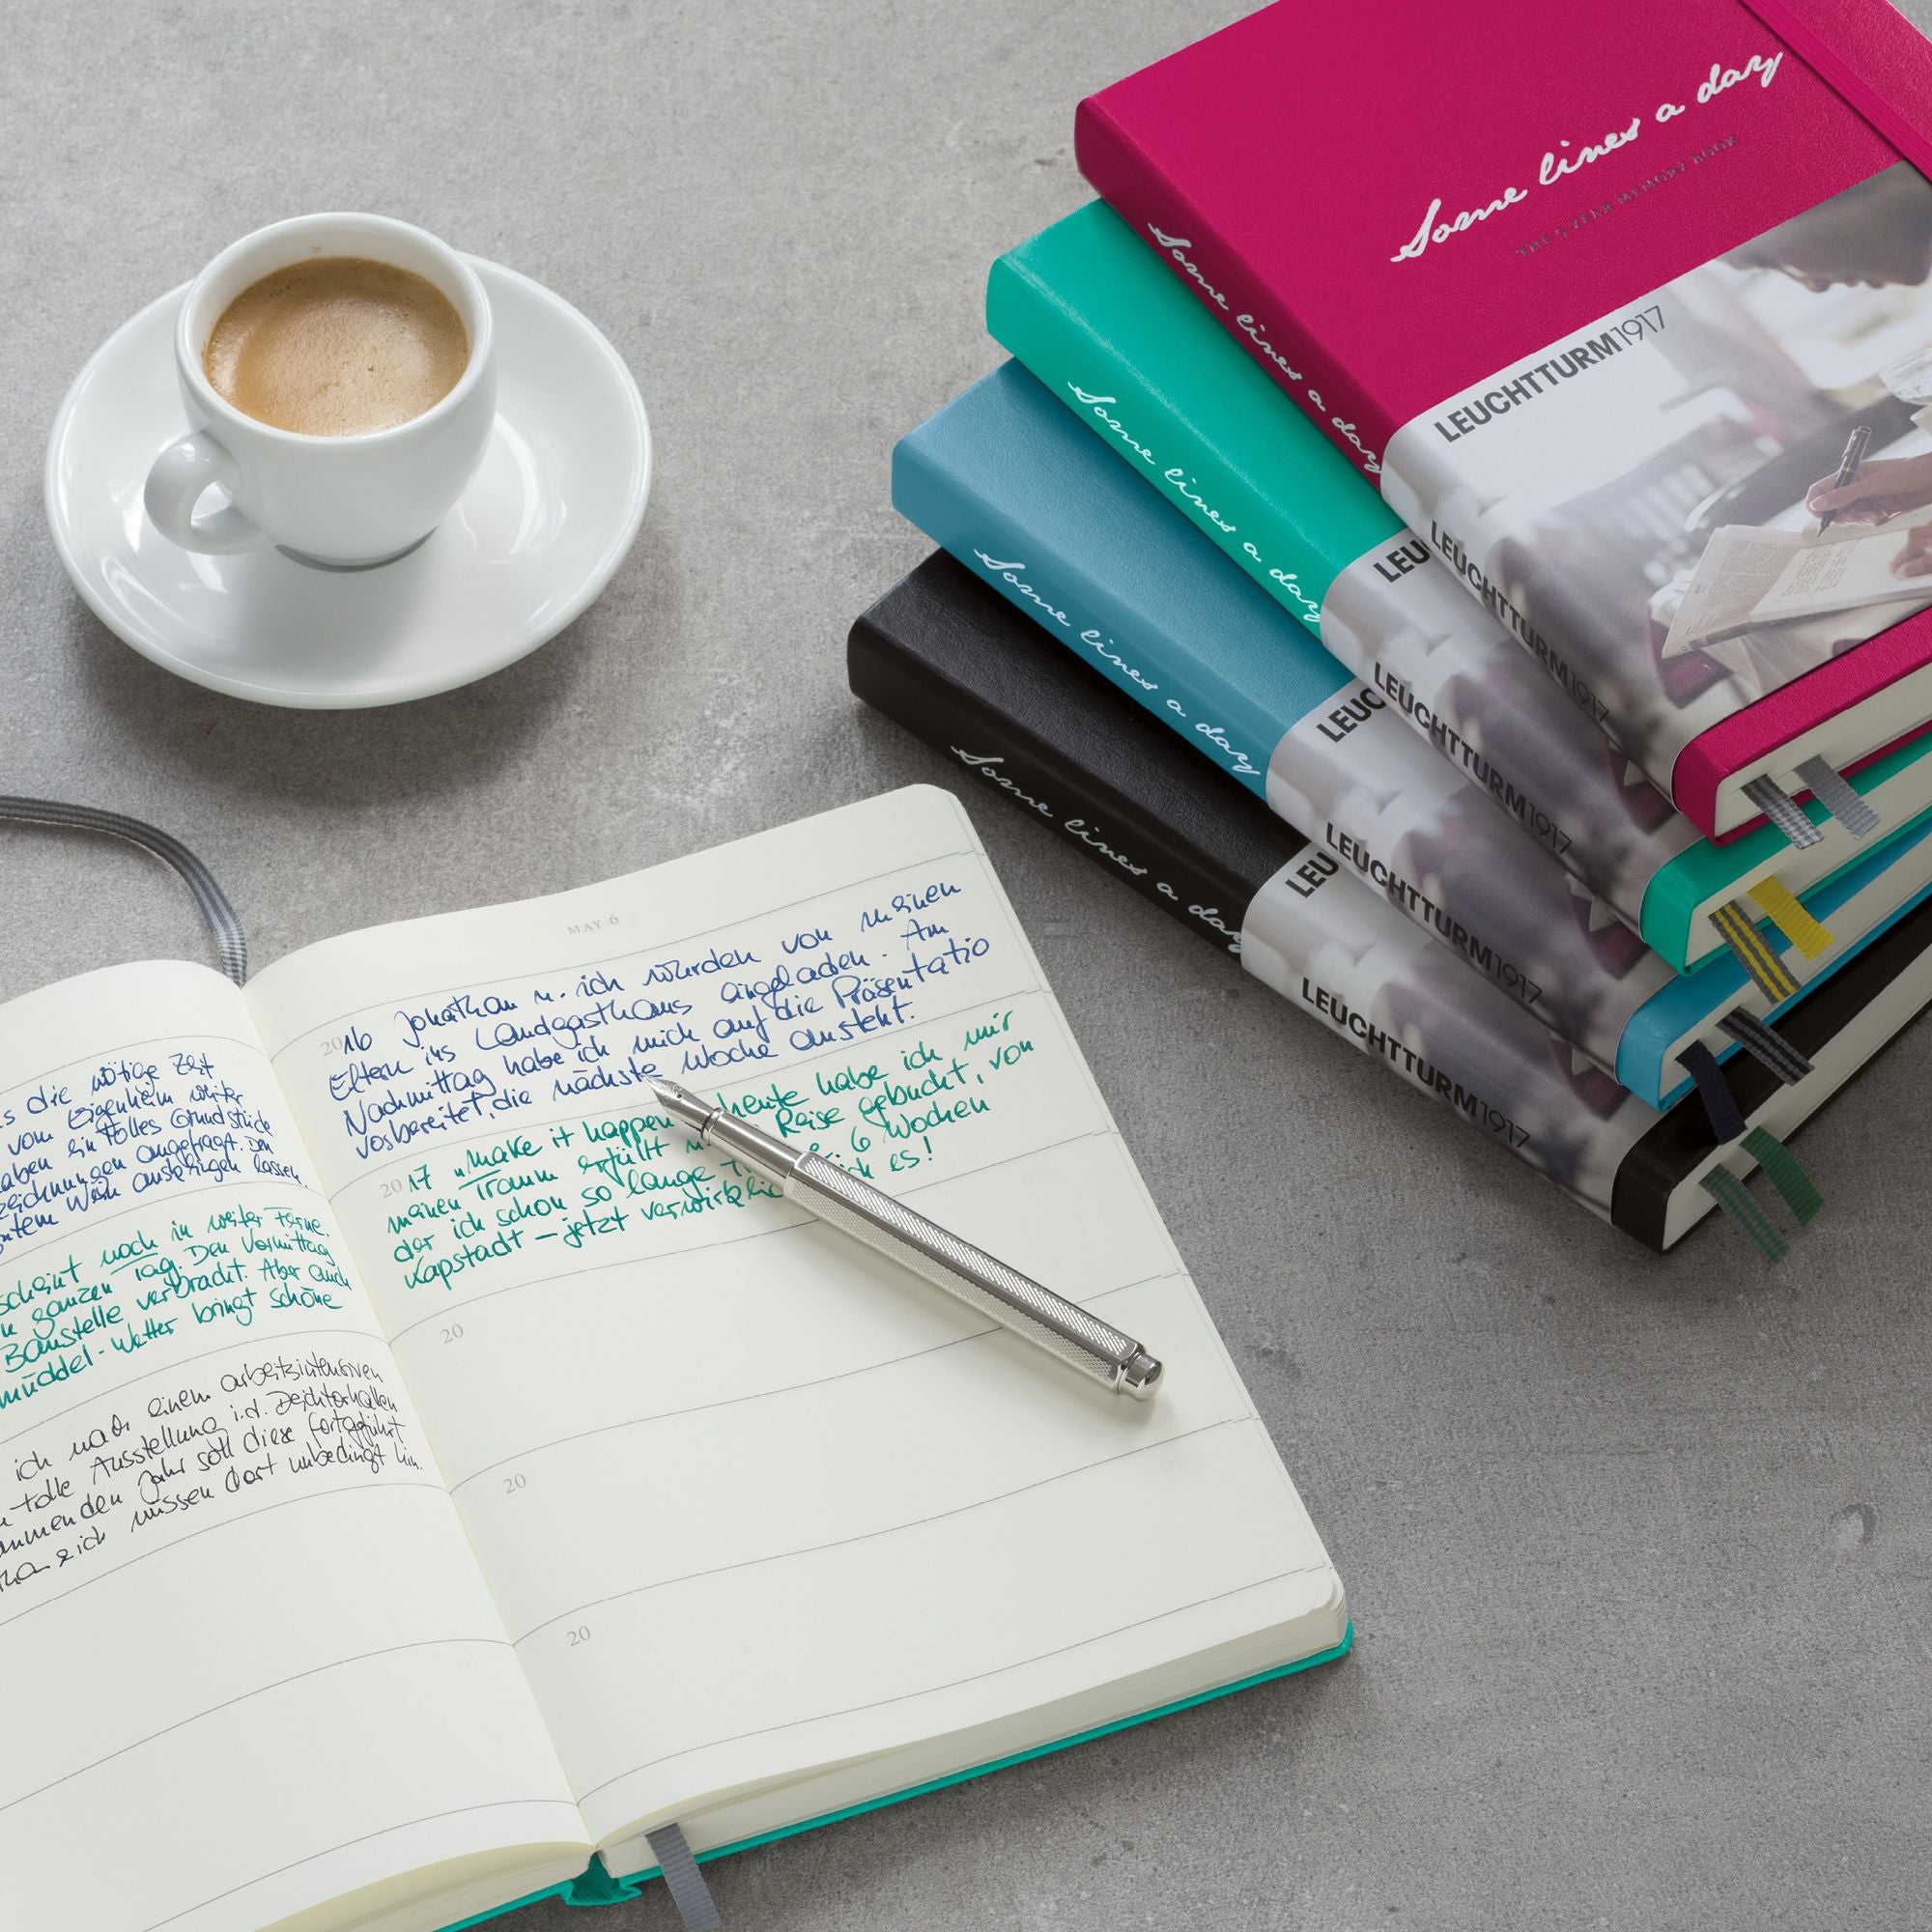 Some lines a day
THE 5 YEAR MEMORY BOOK
LEUCHTTURM1917
Some lines a day
LEUCHTTURM1917
Some lines a day
LEU
LEUCHTTURM1917
Some lines a day
LEUC
LEUCHTTURM1917
Some lines a day
LEU
LEUCHTTURM1917
s die nötige Zeit
vom Eigenheim weiter
aben ein tolles Grundstück
zeichnungen angefragt. Den
ntem Wein ausklingen lassen.
scheint noch in weiter Ferne.
n ganzen Tag. Den Vormittag
Baustelle verbracht. Aber auch
muddel-Wetter bringt schöne
ich nach einem arbeitsintensiven
tolle Ausstellung i.d. Deichtorhallen
ommenden Jahr soll diese fortgeführt
ich müssen dort unbedingt hin.
MAY 6
2016 Jonathan u. ich wurden von meinen
Eltern ins Landgasthaus eingeladen. Am
Nachmittag habe ich mich auf die Präsentatio
vorbereitet, die nächste Woche ansteht.
2017 „make it happen heute habe ich mir
meinen Traum erfüllt Reise gebucht, von
der ich schon so lange 6 Wochen
Kapstadt – jetzt verwirklic ich es!
20
20
20